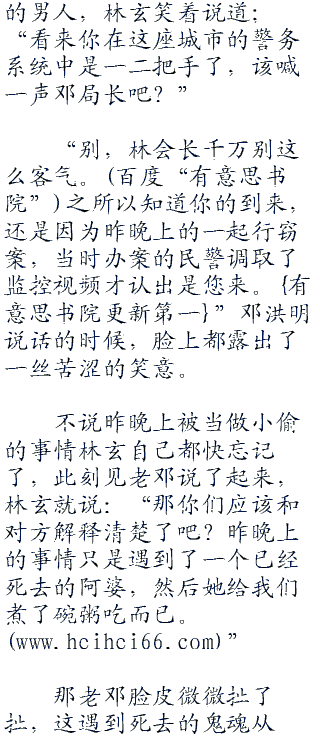 的男人，林玄笑着说道；
“看来你在这座城市的警务
系统中是一二把手了，该喊
一声邓局长吧？”
“别，林会长千万别这
么客气。(百度“有意思书
院”)之所以知道你的到来，
还是因为昨晚上的一起行窃
案，当时办案的民警调取了
监控视频才认出是您来。{有
意思书院更新第一}”邓洪明
说话的时候，脸上都露出了
一丝苦涩的笑意。
不说昨晚上被当做小偷
的事情林玄自己都快忘记
了，此刻见老邓说了起来，
林玄就说：“那你们应该和
对方解释清楚了吧？昨晚上
的事情只是遇到了一个已经
死去的阿婆，然后她给我们
煮了碗粥吃而已。
(www.hcihci66.com)”
那老邓脸皮微微扯了
扯，这遇到死去的鬼魂从